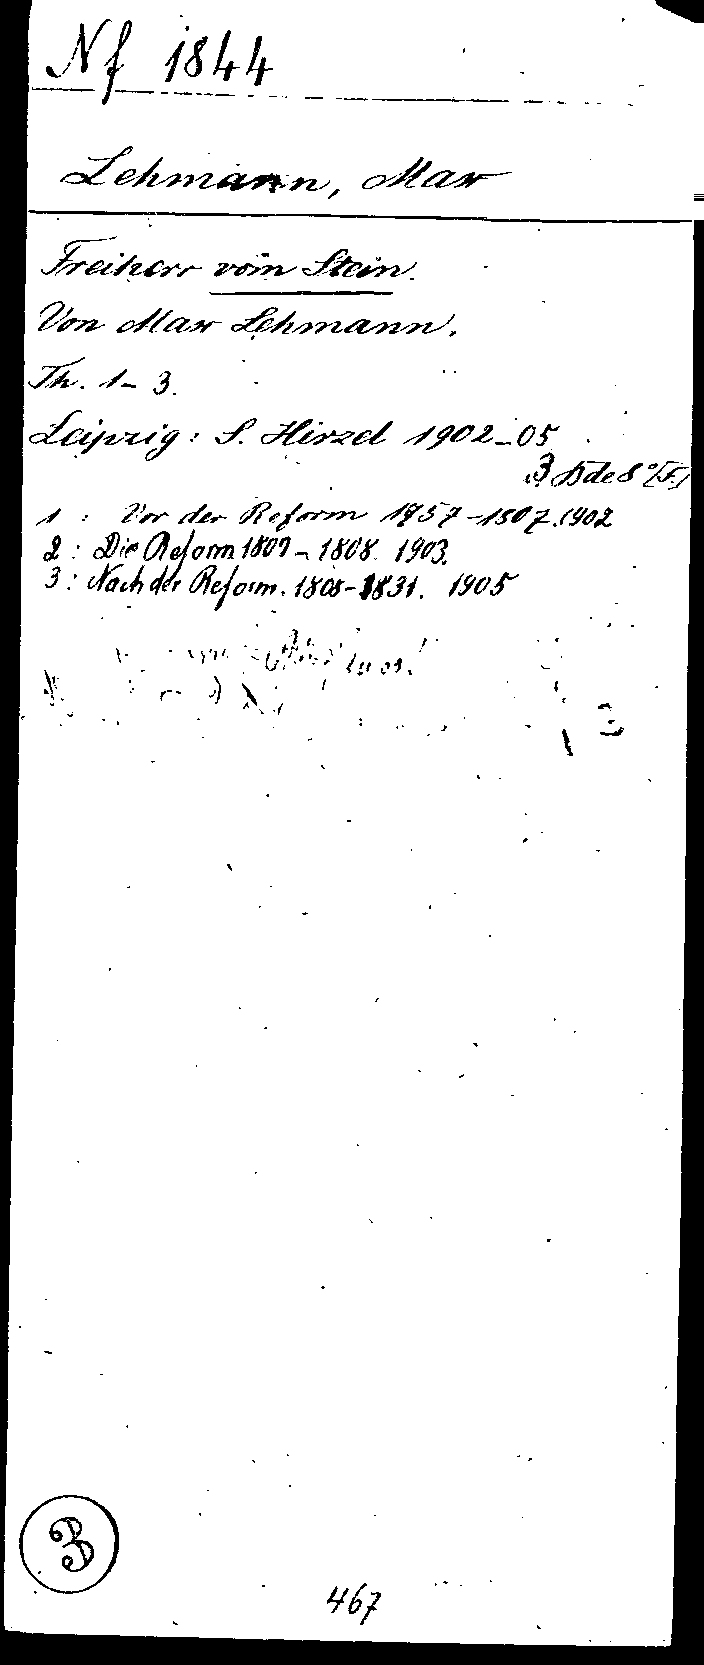 Nf 1844
Lehmann, Max
Freiherr vom Stein.
Von Max Lehmann.
Th. 1-3.
Leipzig: S. Hirzel 1902-05
3 Bde 8° [F.]
1: Vor der Reform 1757-1807. 1902
2: Die Reform 1807-1808. 1903.
3: Nach der Reform. 1808-1831. 1905
3
467